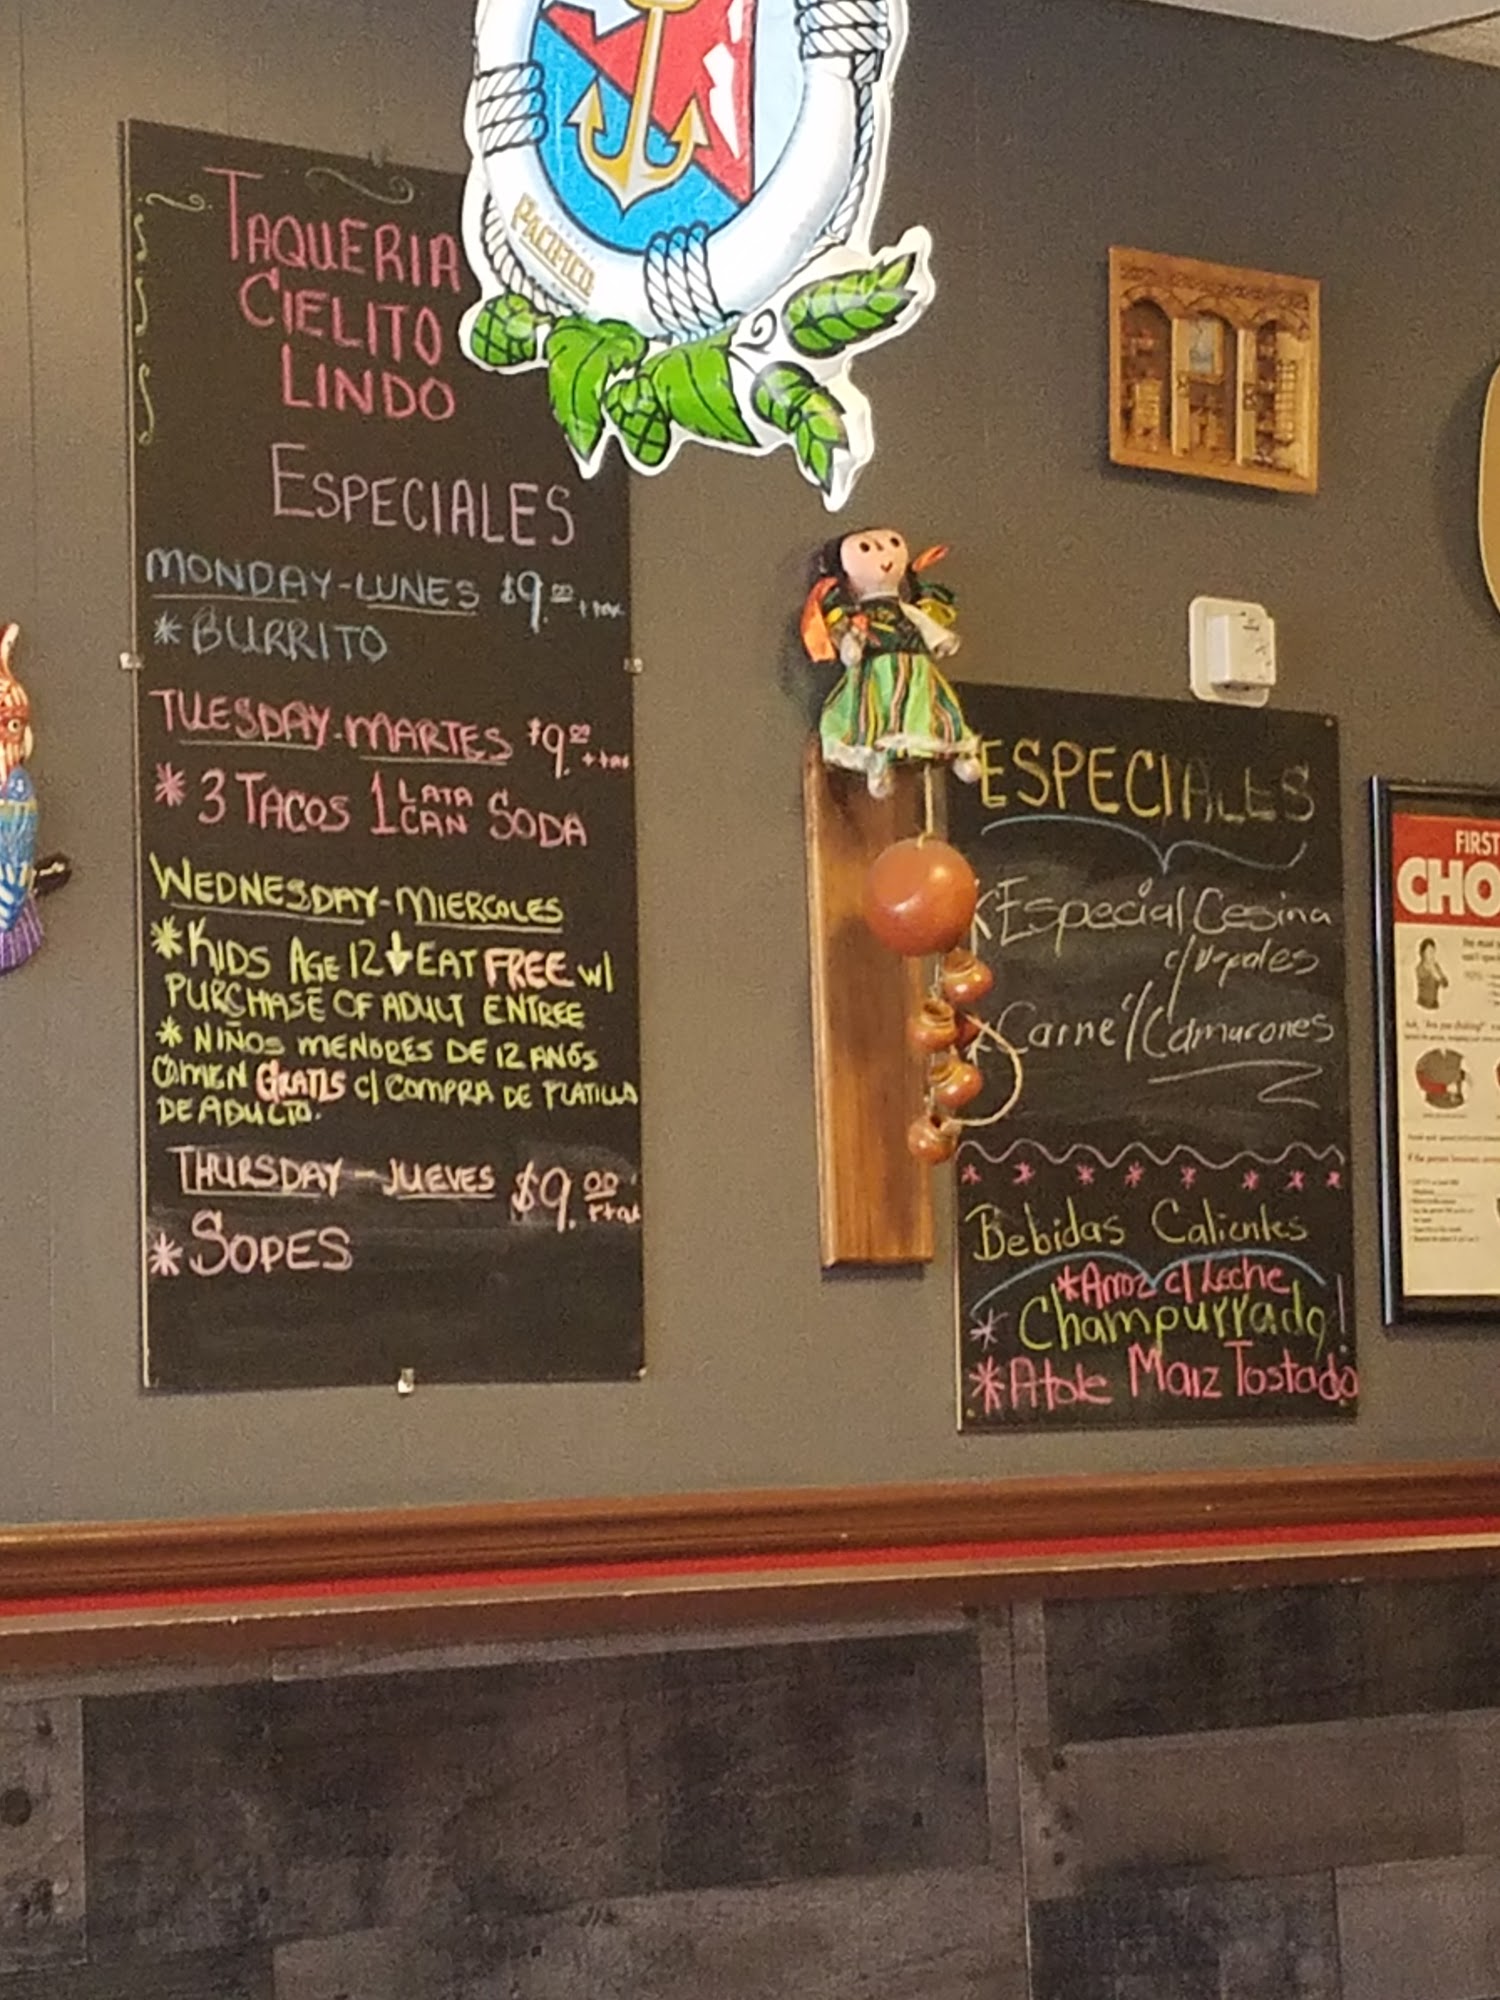 TAQUERIA
CIELITO
LINDO
ESPECIALES
MONDAY-LUNES $9.00 +tax
* BURRITO
TUESDAY-MARTES $9.00 +tax
* 3 TACOS 1 LATA CAN SODA
WEDNESDAY-MIERCOLES
* KIDS AGE 12 ↓ EAT FREE w/
PURCHASE OF ADULT ENTREE
* NIÑOS MENORES DE 12 AÑOS
COMEN GRATIS c/ COMPRA DE PLATILLO
DE ADULTO.
THURSDAY-JUEVES $9.00 +tax
* SOPES
PACIFICO
ESPECIALES
Especial Cesina
c/
Carne c/ Camarones
Bebidas Calientes
*Arroz c/ Leche
* Champurrado!
* Atole Maiz Tostado
FIRST
CHO